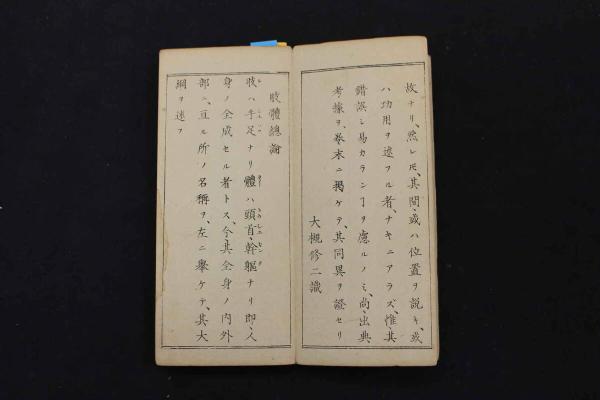 故ナリ、然レ𪜈、其間、或ハ位置ヲ説キ、或
ハ功用ヲ述フル者、ナキニアラズ、惟、其
錯誤シ易カランヿヲ慮ルノミ、尚、出典、
考據ヲ、巻末ニ掲ケテ、其同異ヲ證セリ
大槻修二識
肢體總論
肢ハ手足ナリ體ハ頭首、幹軀ナリ即、人
身ノ全成セル者トス、今其全身ノ内外
部ニ、亘ル所ノ名稱ヲ、左ニ擧ケテ、其大
綱ヲ述フ